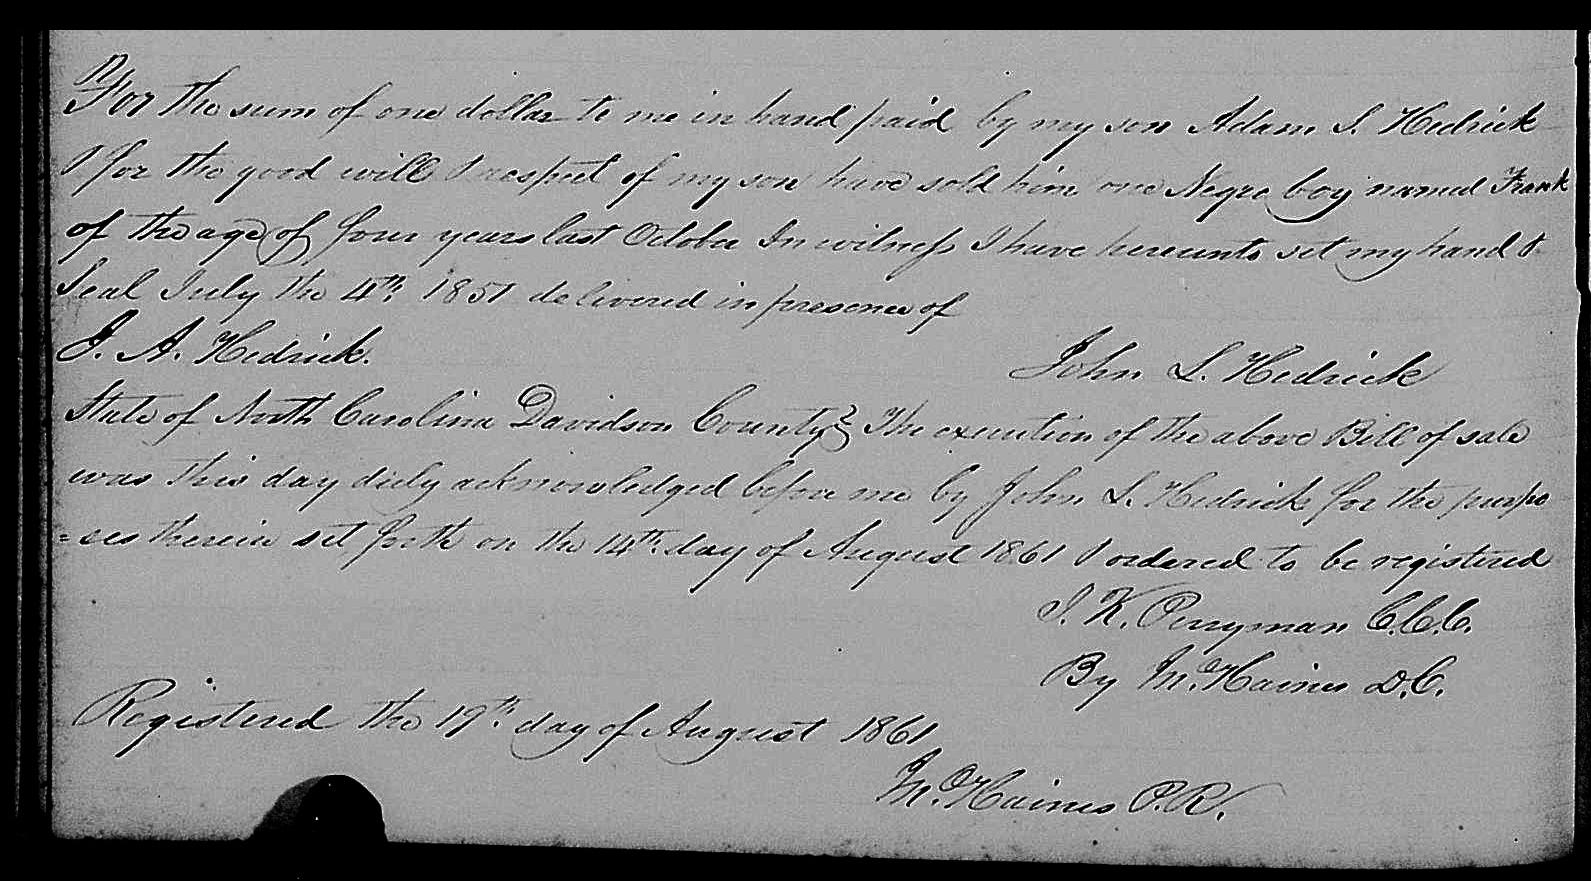 For the sum of one dollar to me in hand paid by my son Adam S. Hedrick
& for the good will & respect of my son have sold him one Negro boy named Frank
of the age of four years last October In witness I have hereunto set my hand &
Seal July the 4th 1851 delivered in presence of
J. A. Hedrick.
John L. Hedrick
State of North Carolina Davidson County } The execution of the above Bill of sale
was this day duly acknowledged before me by John L. Hedrick for the purpo
=ses therein set forth on the 14th day of August 1861 & ordered to be registered
I. K. Perryman C.C.C.
By M. Haines D.C.
Registered the 19th day of August 1861
M. Haines P.R.